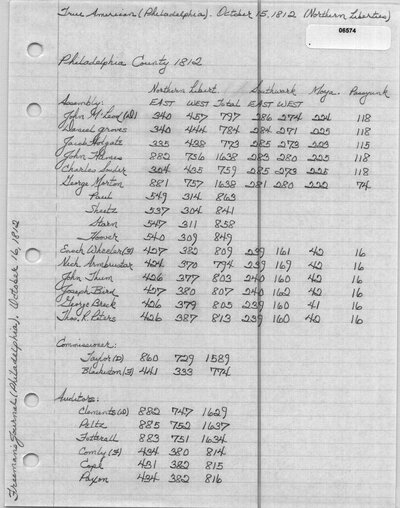 True American (Philadelphia). October 15, 1812 (Northern Liberties)
06574
Philadelphia County 1812
Northern Libert. Southwark Moya. Passyunk
Assembly: EAST WEST Total EAST WEST
John McLeod (D) 340 457 797 286 274 224 118
Daniel Groves 340 444 784 284 271 225 118
Jacob Holgate 335 438 773 285 273 223 115
John Holmes 882 756 1638 283 280 225 118
Charles Souder 324 435 759 285 273 225 118
George Morton 881 757 1638 281 280 222 74
Paul 549 314 863
Sheetz 537 304 841
Starn 547 311 858
Hoover 540 309 849
Enoch Wheeler (F) 427 382 809 239 161 42 16
Nich. Armbruster 424 370 794 239 169 42 16
John Thum 426 377 803 240 160 42 16
Joseph Bird 427 380 807 240 162 42 16
George Breck 426 379 805 239 160 41 16
Thos. R. Peters 426 387 813 239 160 42 16
Commissioner:
Taylor (D) 860 729 1589
Blackiston (F) 441 333 774
Auditors:
Clements (D) 882 747 1629
Peltz 885 752 1637
Fottrall 883 751 1634
Comly (F) 434 380 814
Cope 431 382 815
Paxson 434 382 816
Freeman's Journal (Philadelphia). October 16, 1812